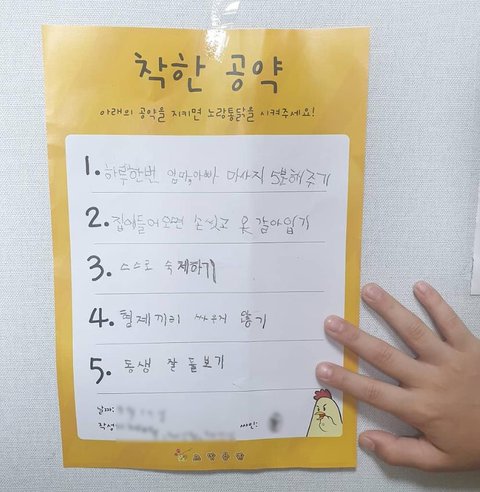 착한 공약
아래의 공약을 지키면 노랑통닭을 시켜주세요!
1. 하루한번 엄마,아빠 마사지 5분해주기
2. 집에들어오면 손씻고 옷 갈아입기
3. 스스로 숙제하기
4. 형제끼리 싸우지 않기
5. 동생 잘 돌보기
날짜:
작성 싸인: